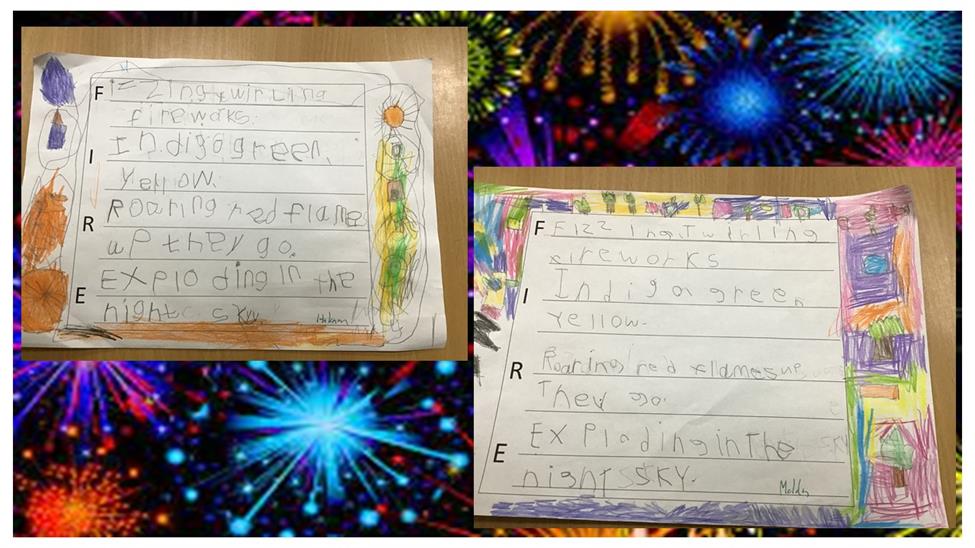 F izzing twirling
fireworks.
I Indigo green,
yellow.
R Roaring red flames
up they go.
E EXploding in the
night sky.
F Fizzing Twirling
fireworks
I Indigo green
Yellow.
R Roaring red flames up
They go.
E EXPloding in The
night SKY.